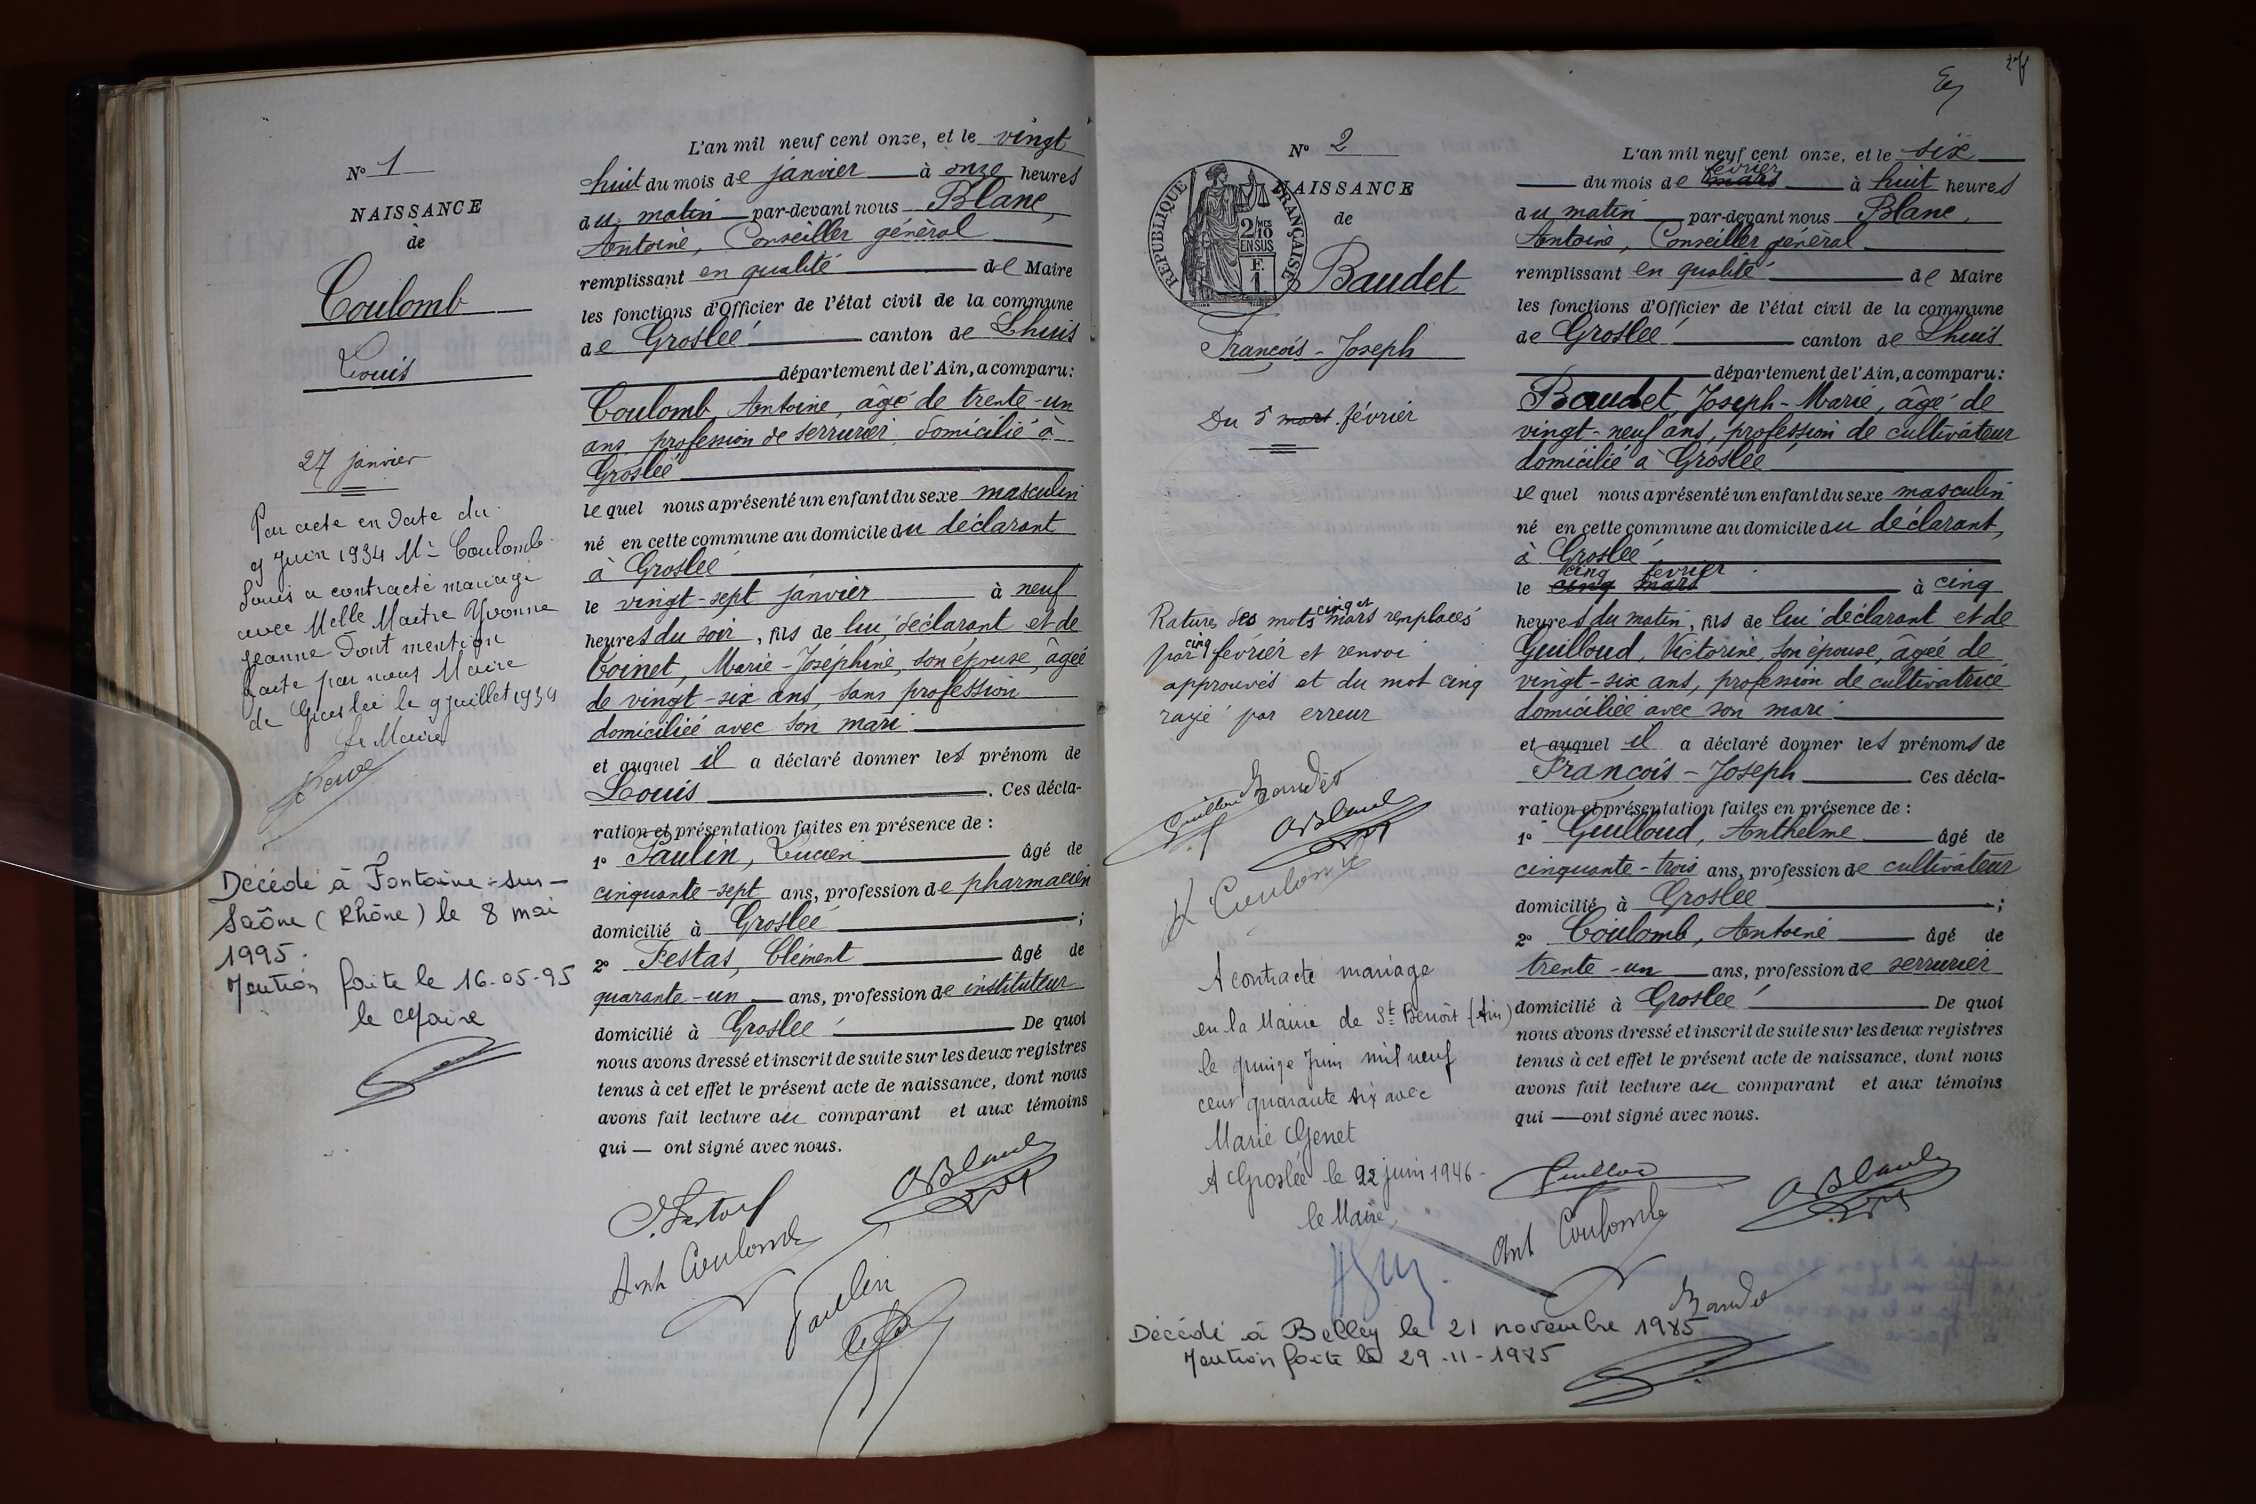 L'an mil neuf cent onze, et le vingt
N° 1
huit du mois de janvier à onze heures
NAISSANCE
du matin par-devant nous Blanc,
de
Antoine, Conseiller général
remplissant en qualité de Maire
Coulomb
les fonctions d'Officier de l'état civil de la commune
de Groslée canton de Lhuis
Louis
département de l'Ain, a comparu:
Coulomb, Antoine, âgé de trente-un
ans, profession de serrurier, domicilié à
Groslée
27 janvier
le quel nous a présenté un enfant du sexe masculin
né en cette commune au domicile du déclarant
à Groslée
le vingt-sept janvier à neuf
heures du soir, fils de lui, déclarant et de
Coinet, Marie-Joséphine, son épouse, âgée
de vingt-six ans, sans profession
domiciliée avec son mari
et auquel il a déclaré donner les prénom de
Louis. Ces décla-
ration et présentation faites en présence de :
1° Paulin, Lucien âgé de
cinquante-sept ans, profession de pharmacien
domicilié à Groslée ;
2° Festas, Clément âgé de
quarante-un ans, profession de instituteur
domicilié à Groslée De quoi
nous avons dressé et inscrit de suite sur les deux registres
tenus à cet effet le présent acte de naissance, dont nous
avons fait lecture au comparant et aux témoins
qui — ont signé avec nous.
Par acte en date du
9 Juin 1934 Mr Coulomb
Louis a contracté mariage
avec Melle Maitre Yvonne
Jeanne Dont mention
faite par nous Maire
de Groslée le 9 juillet 1934
Le Maire
Décédé à Fontaine-sur-
Saône (Rhône) le 8 mai
1995.
Mention faite le 16-05-95
le Maire
ABlanc
Ant Coulomb
Paulin
N° 2
NAISSANCE
de
RÉPUBLIQUE FRANÇAISE
2/10
EN SUS
F.
1
Baudet
François-Joseph
Du 5 mars février
L'an mil neuf cent onze, et le six
février
du mois de mars à huit heures
du matin par-devant nous Blanc,
Antoine, Conseiller général
remplissant en qualité de Maire
les fonctions d'Officier de l'état civil de la commune
de Groslée canton de Lhuis
département de l'Ain, a comparu:
Baudet, Joseph-Marie, âgé de
vingt-neuf ans, profession de cultivateur
domicilié à Groslée
le quel nous a présenté un enfant du sexe masculin
né en cette commune au domicile du déclarant,
à Groslée
cinq février
le cinq mars à cinq
heures du matin, fils de lui déclarant et de
Guilloud, Victorine, son épouse, âgée de
vingt-six ans, profession de cultivatrice
domiciliée avec son mari
et auquel il a déclaré donner les prénoms de
François-Joseph Ces décla-
ration et présentation faites en présence de :
1° Guilloud, Anthelme âgé de
cinquante-trois ans, profession de cultivateur
domicilié à Groslée ;
2° Coulomb, Antoine âgé de
trente-un ans, profession de serrurier
domicilié à Groslée De quoi
nous avons dressé et inscrit de suite sur les deux registres
tenus à cet effet le présent acte de naissance, dont nous
avons fait lecture au comparant et aux témoins
qui — ont signé avec nous.
cinq et
Ratures des mots mars remplacés
par cinq février et renvoi
approuvés et du mot cinq
rayé par erreur
Baudet
ABlanc
Coulomb
A contracté mariage
en la Mairie de St Benoît (Ain)
le quinze Juin mil neuf
cent quarante six avec
Marie Genet
A Groslée le 22 juin 1946
le Maire,
ABlanc
Ant Coulomb
Baudet
Décédé à Belley le 21 novembre 1985
Mention faite le 29-11-1985